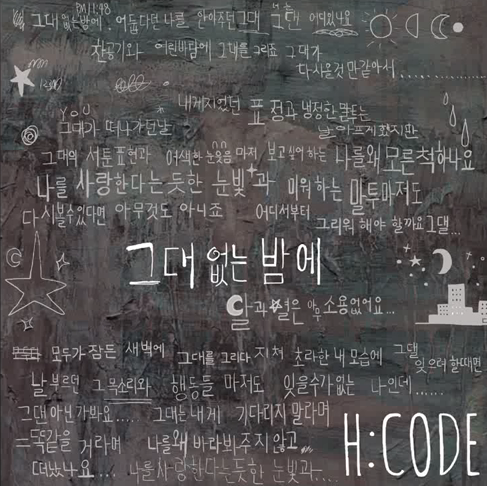 PM 11:48
그대 없는 밤에.. 어둡다던 나를 안아주던 그대 그댄 어디 있나요
찬공기와 여린바람에 그대를 그리죠 그대가
다 사올것 만 같아서
내게 지었던 표정과 냉정한 말투는
YOU
그대가 떠나가던날 날 아프게 했지만
그대의 서툰 표현과 어색한 눈웃음 마저 보고싶어 하는 나를왜 모른척하나요
나를 사랑한다는 듯한 눈빛과 미워하는 말투마저도
다시볼수있다면 아무것도 아니죠 어디서부터
그리워 해야 할까요 그댈...
그대 없는 밤에
달과 별은 아무 소용없어요...
모두가 잠든 새벽에 그대를 그리다 지쳐 초라한 내 모습에 그댈
잊으려 할때면
날 부르던 그 목소리와 행동들 마저도 잊을수가 없는 나인데......
그댄 아닌가봐요.... 그대는 내게 기다리지 말라며
똑같을 거라며 나를왜 바라봐주지 않고
떠났나요.... 나를 사랑한다는 듯한 눈빛과....
H:CODE